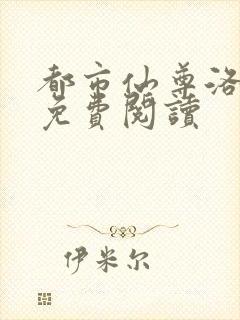 都市仙尊洛
免費閱讀
伊米尔